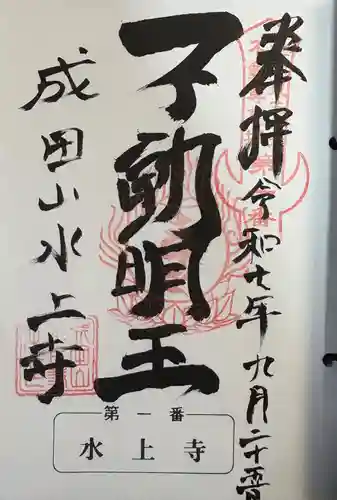 奉拝
令和七年九月二十四日
不動明王
成田山水上寺
第一番
水上寺